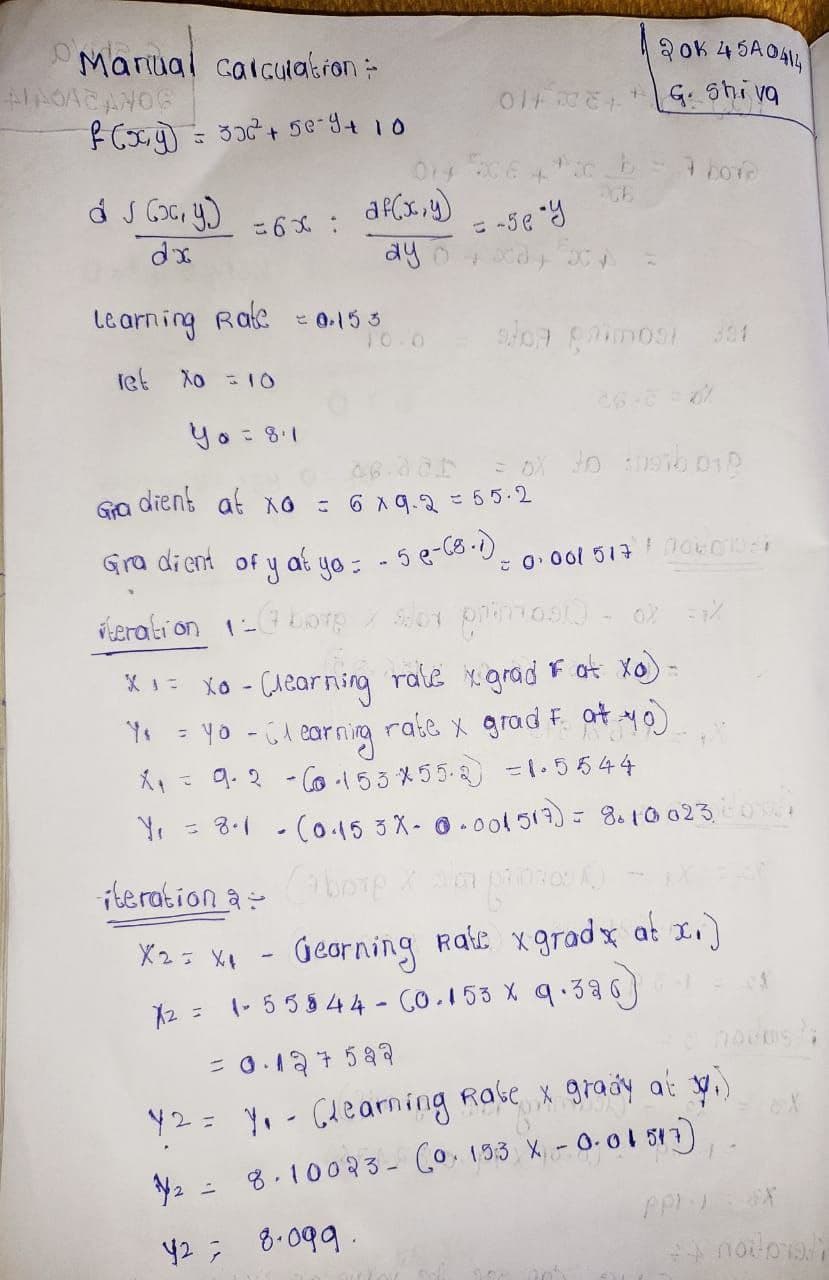 Manual Calculation:-
20K45A0414
G. Shiva
f(x,y) = 3x² + 5e-y + 10
d f(x,y)/dx = 6x : df(x,y)/dy = -5e-y
learning Rate = 0.153
let x0 = 10
y0 = 8.1
Gradient at x0 = 6 x 9.2 = 55.2
Gradient of y at y0 = -5e-(8.1) = 0.001517
iteration 1:-
X1 = x0 - (learning rate x grad F at x0) =
Y1 = y0 - (learning rate x grad F at y0)
X1 = 9.2 - (0.153 x 55.2) = 1.5544
Y1 = 8.1 - (0.153 x - 0.001517) = 8.10023
iteration 2:-
X2 = X1 - (learning Rate x grad x at x1)
X2 = 1.55544 - (0.153 x 9.326)
= 0.127522
Y2 = Y1 - (learning Rate x grady at y1)
Y2 = 8.10023 - (0.153 x - 0.01517)
Y2 = 8.099.